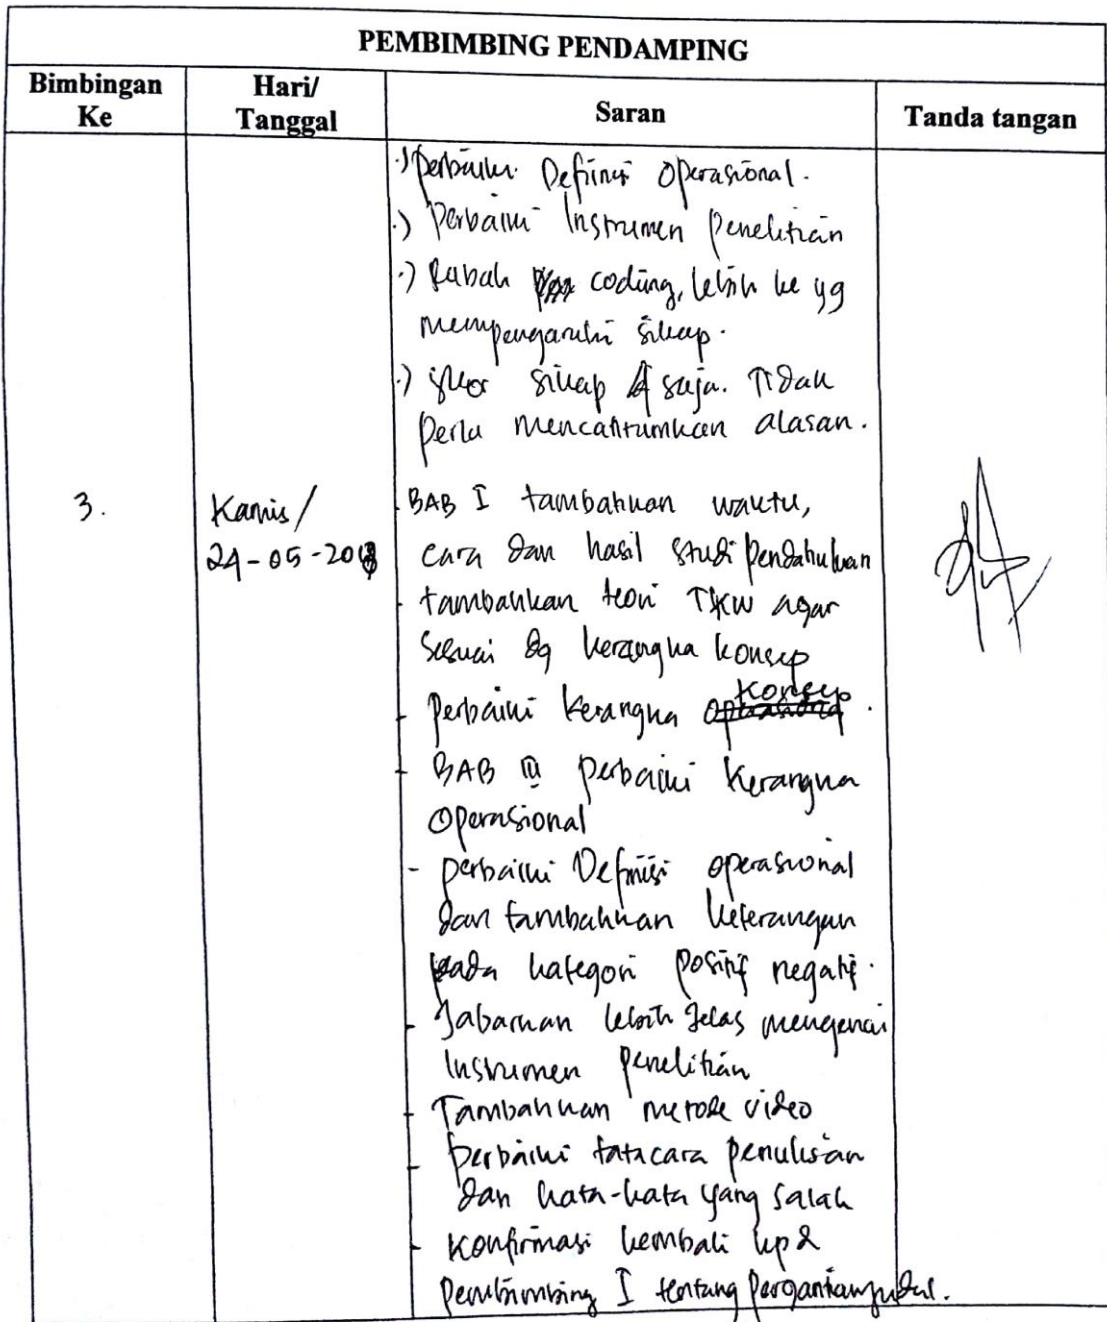 PEMBIMBING PENDAMPING
Bimbingan Ke
Hari/ Tanggal
Saran
Tanda tangan
.) Perbaiki Definisi Operasional.
.) Perbaiki Instrumen Penelitian
.) Rubah coding, lebih ke yg
mempengaruhi sikap.
.) skor sikap saja. Tidak
perlu mencantumkan alasan.
3.
Kamis/
24-05-2018
- BAB I tambahkan waktu,
cara dan hasil studi pendahuluan
- tambahkan teori TKW agar
sesuai dg kerangka konsep
- Perbaiki kerangka konsep.
- BAB III perbaiki kerangka
Operasional
- perbaiki Definisi operasional
dan tambahkan keterangan
pada kategori positif negatif.
- Jabarkan lebih jelas mengenai
Instrumen penelitian
- Tambahkan metode video
- perbaiki tatacara penulisan
dan kata-kata yang salah
- Konfirmasi kembali kpd
Pembimbing I tentang pergantian judul.